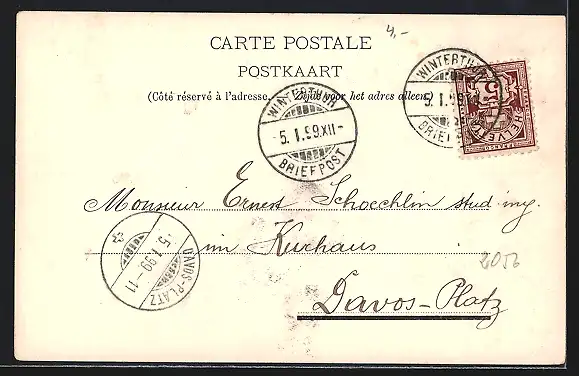 4,-
CARTE POSTALE
POSTKAART
(Côté réservé à l'adresse. Zijde voor het adres alleen.)
WINTERTHUR
-5.I.99.XII-
BRIEFPOST
WINTERTHUR
5.I.99.XII
BRIEFPOST
HELVETIA
Monsieur Ernest Schoechlin stud. ing.
im Kurhaus
2056
Davos-Platz
DAVOS-PLATZ
5.I.99.-11